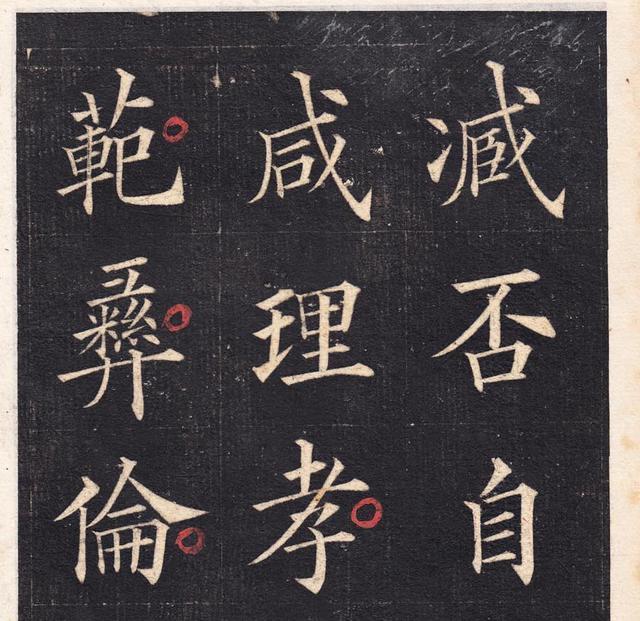 臧否自
咸理孝
範彝倫